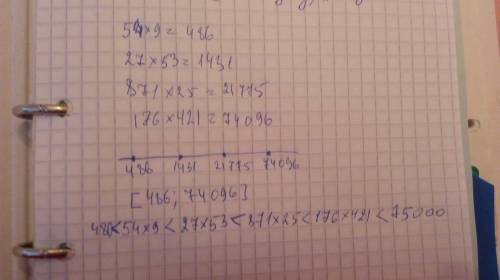 54×9=486
27×53=1431
871×25=21775
176×421=74096
486 1431 21775 74096
[486; 74096]
480<54×9<27×53<871×25<176×421<75000